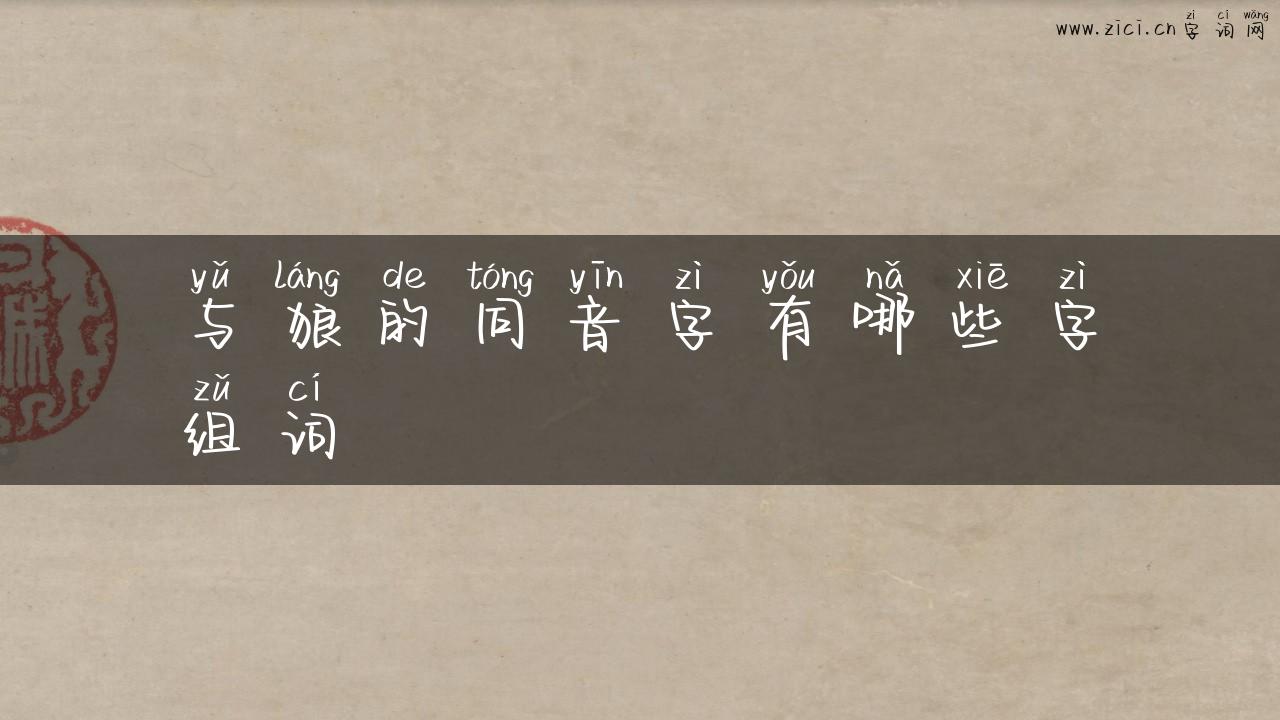 zì cí wǎng
www.zici.cn 字词网
yǔ láng de tóng yīn zì yǒu nǎ xiē zì
与狼的同音字有哪些字
zǔ cí
组词